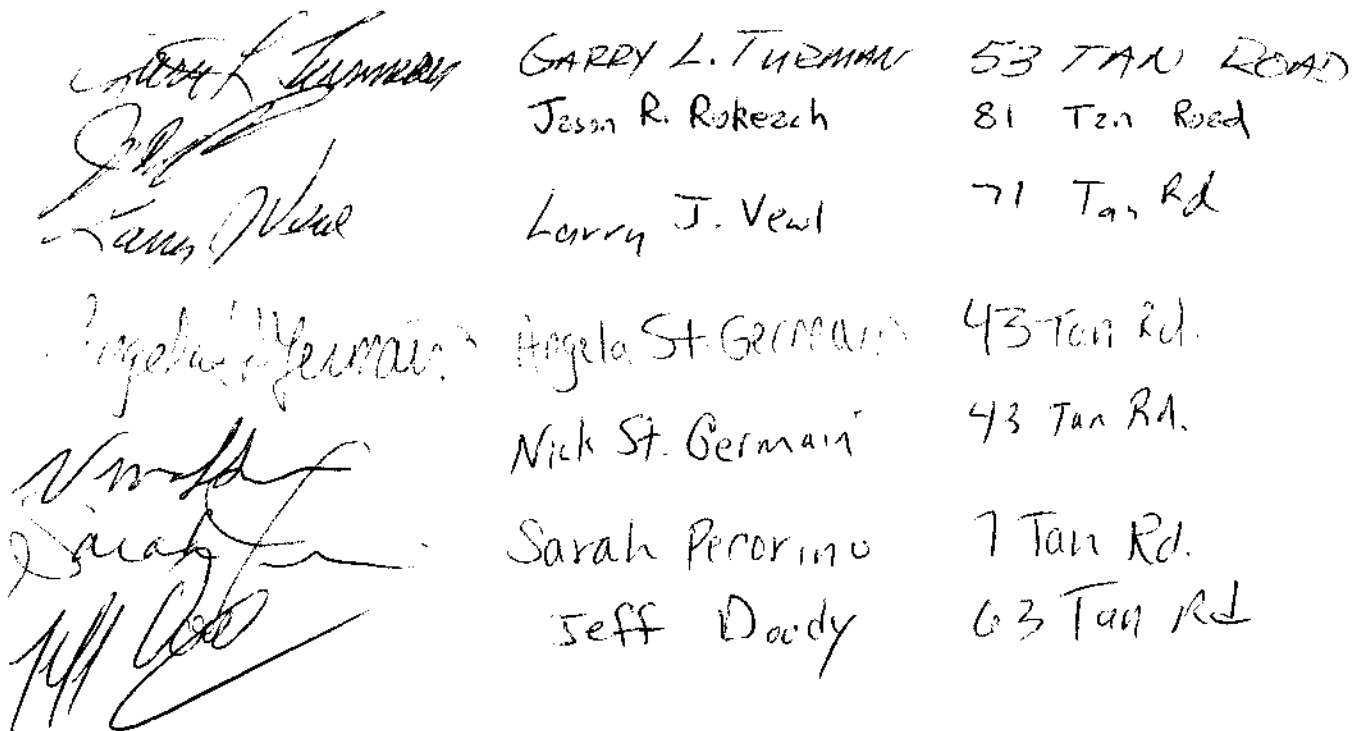 Garry L Turman GARRY L. TURMAN 53 TAN ROAD
Jason R. Rokeach 81 Tan Road
Larry J Veal Larry J. Veal 71 Tan Rd
Angela St Germain Angela St. Germain 43 Tan Rd.
Nick St. Germain 43 Tan Rd.
Sarah Sarah Pecorino 7 Tan Rd.
Jeff Jeff Doody 63 Tan Rd